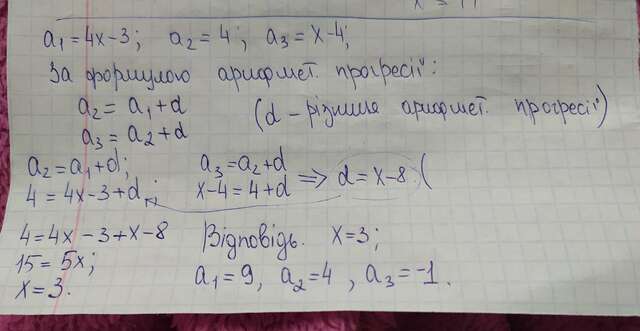 x = 11
a₁=4x-3; a₂=4; a₃=x-4;
За формулою арифмет. прогресії:
a₂= a₁+d
(d – різниця арифмет. прогресії)
a₃= a₂+d
a₂=a₁+d; a₃=a₂+d
4=4x-3+d; x-4=4+d => d=x-8
4=4x-3+x-8
15=5x;
x=3.
Відповідь. x=3;
a₁=9, a₂=4, a₃=-1.